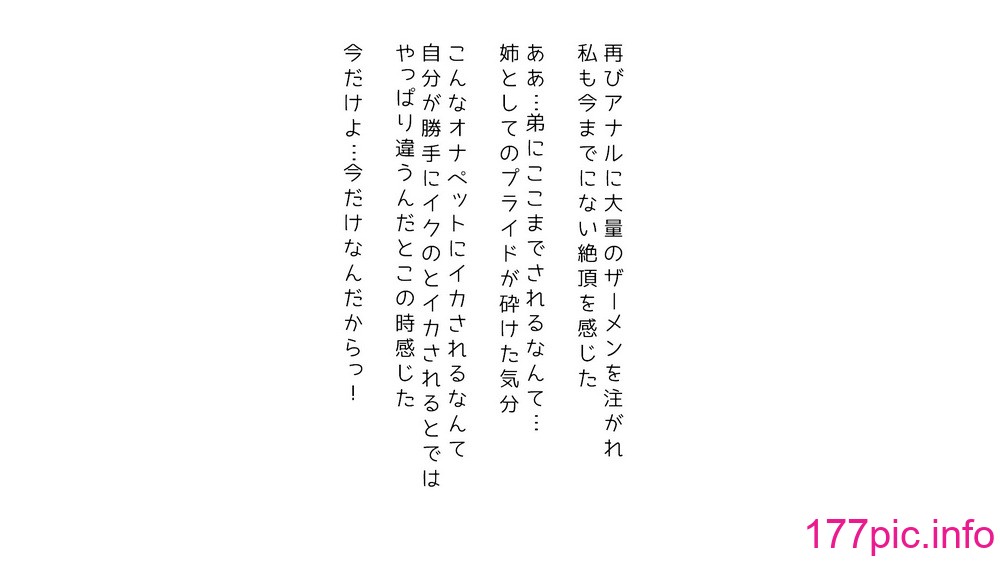 再びアナルに大量のザーメンを注がれ
私も今までにない絶頂を感じた
ああ…弟にここまでされるなんて…
姉としてのプライドが砕けた気分
こんなオナペットにイカされるなんて
自分が勝手にイクのとイカされるとでは
やっぱり違うんだとこの時感じた
今だけよ…今だけなんだからっ！
177pic.info